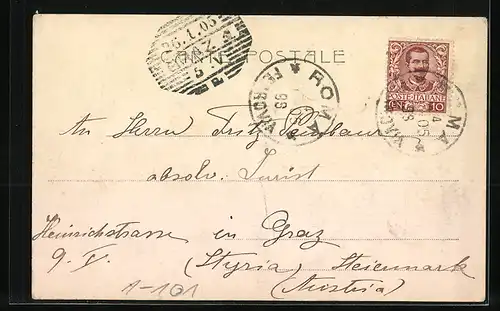 26.1.05
GRAZ
CARTE POSTALE
ROMA
FERROVIA
99
POSTE ITALIANE
CENT. 10
ROMA
05
An Herrn Fritz
absolv. Jurist
Heinrichstrasse in Graz
9. V. (Styria) Steiermark
(Austria)
1-101